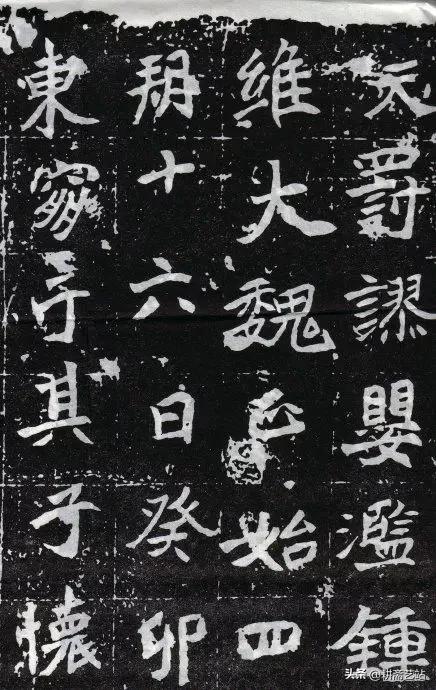 天罰謬嬰濫鍾
維大魏正始四
朔十六日癸卯
東于其子懷
头条 @耕斋艺站